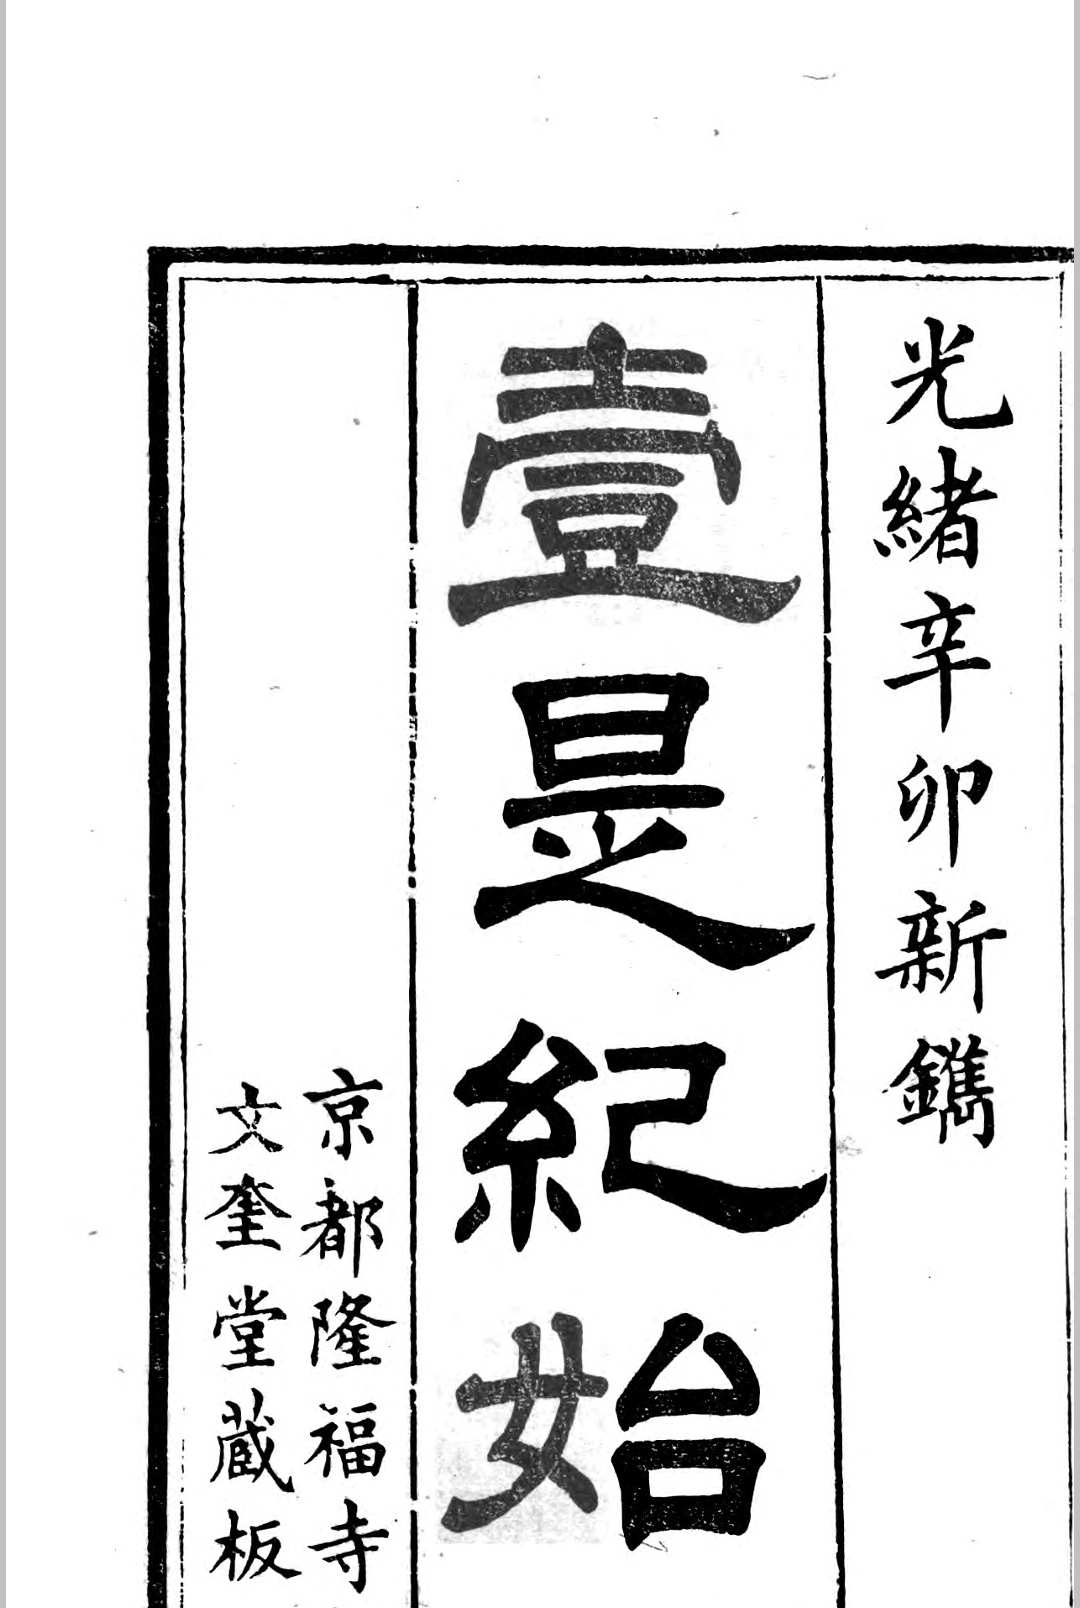 光緒辛卯新鐫
壹是紀始
京都隆福寺
文奎堂蔵板